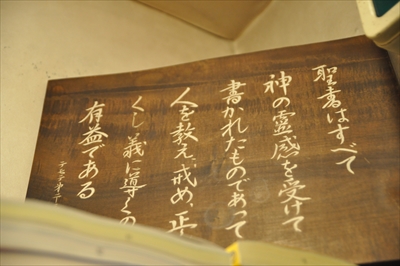 聖書はすべて
神の霊感を受けて
書かれたものであって
人を教え、戒め、正
くし義に導くの
有益である
テモテ第二